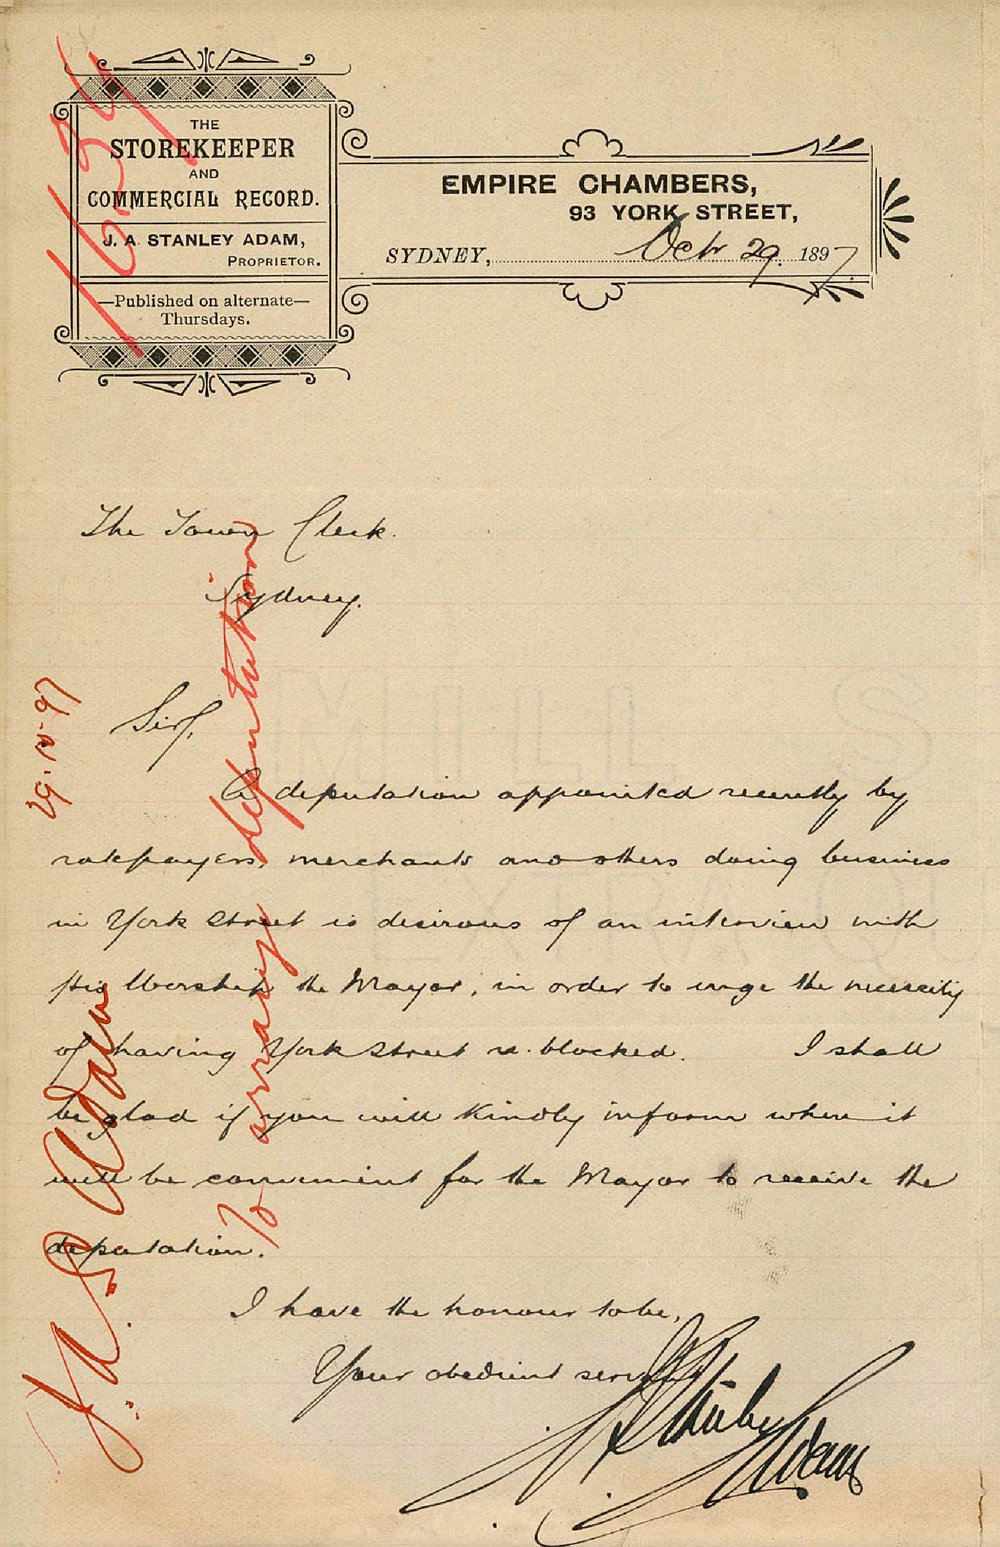 THE
STOREKEEPER
AND
COMMERCIAL RECORD.
J. A. STANLEY ADAM,
PROPRIETOR.
—Published on alternate—
Thursdays.
EMPIRE CHAMBERS,
93 YORK STREET,
SYDNEY, Oct 29. 1897.
The Town Clerk.
Sydney.
Sir,
A deputation appointed recently by
ratepayers, merchants and others doing business
in York Street is desirous of an interview with
His Worship the Mayor, in order to urge the necessity
of having York Street re-blocked. I shall
be glad if you will kindly inform when it
will be convenient for the Mayor to receive the
deputation.
I have the honour to be,
Your obedient servant
J A Stanley Adam
29.10.97
J. A. S. Adam
To arrange deputation